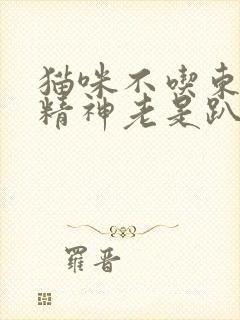 猫咪不喫東
精神老是趴
羅晋